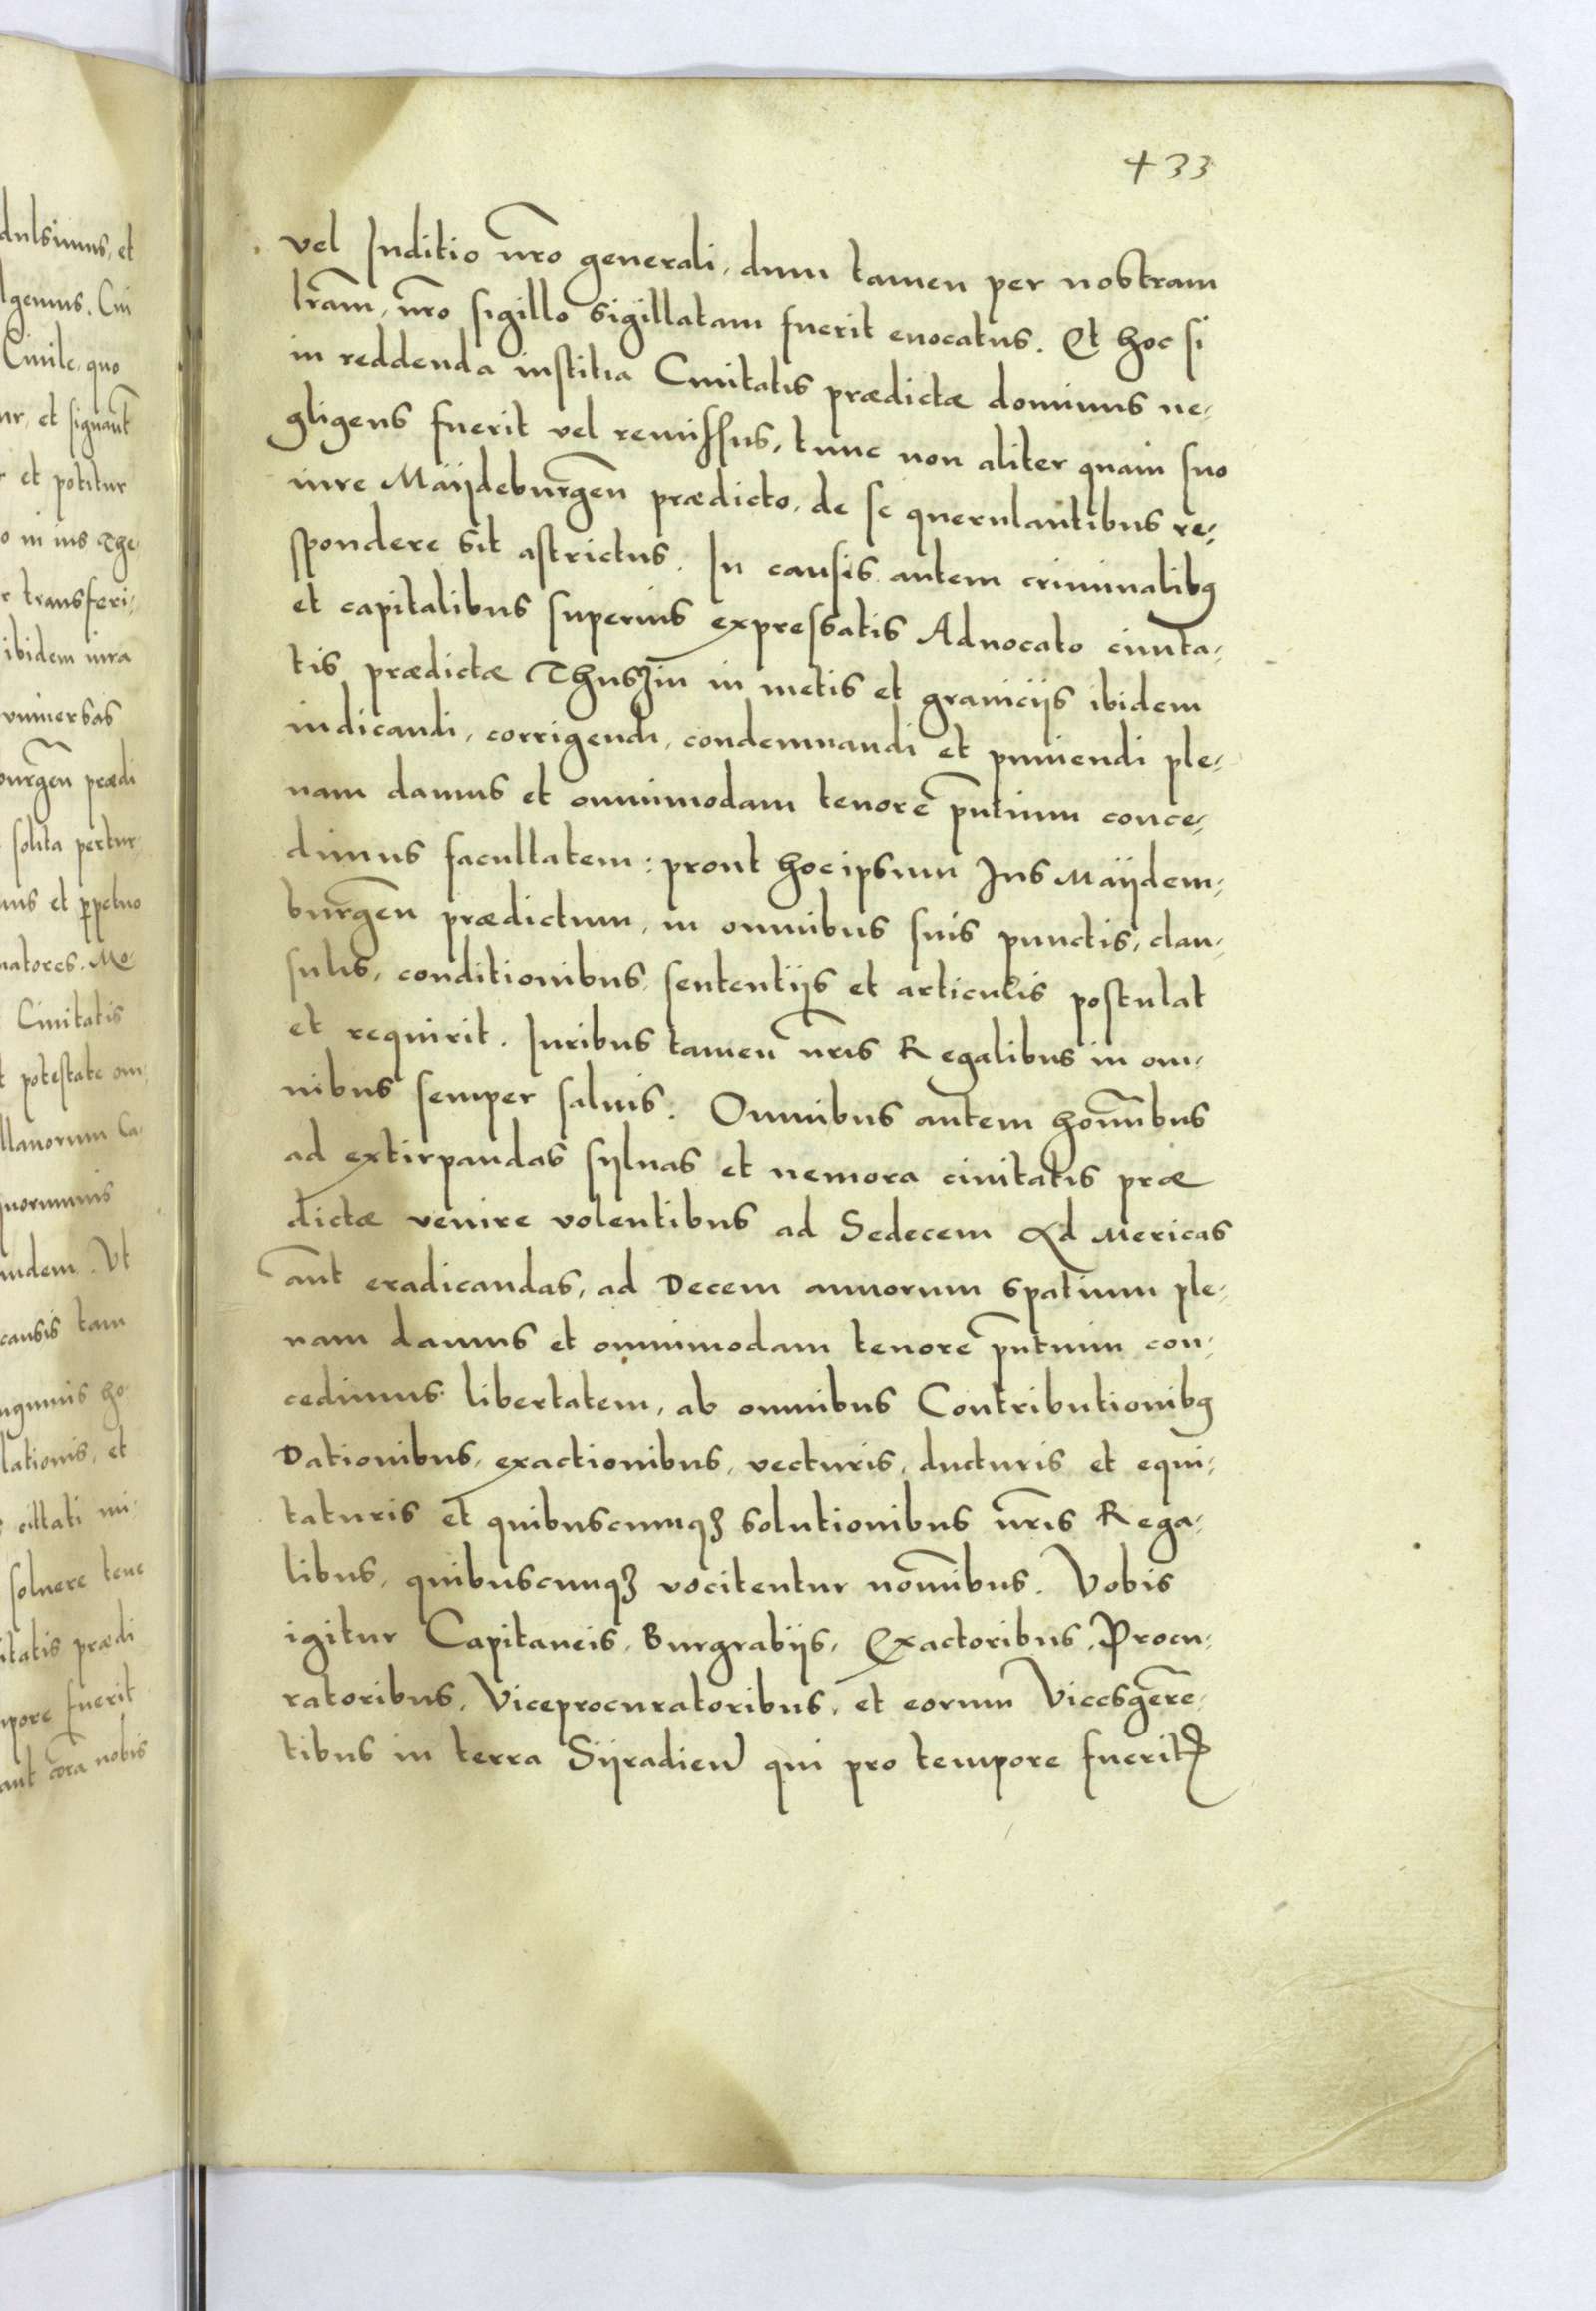 433
vel Iuditio nr̄o generali, dum tamen per nostram
lr̄am, nr̄o sigillo sigillatam fuerit euocatus. Et hoc si
in reddenda iustitia Ciuitatis prædictæ dominus ne-
gligens fuerit vel remissus, tunc non aliter quam suo
iure Maÿdeburgen̄ prædicto, de se querulantibus re-
spondere sit astrictus. In causis autem criminalibꝰ
et capitalibus superius expressatis Aduocato ciuita-
tis prædictæ Thuszin in metis et granicijs ibidem
iudicandi, corrigendi, condemnandi et puniendi ple-
nam damus et omnimodam tenorē pn̄tium conce-
dimus facultatem: prout hocipsum Ius Maÿdem-
burgen̄ prædictum, in omnibus suis punctis, clau-
sulis, conditionibus, sententijs et articulis postulat
et requirit. Iuribus tamen nr̄is Regalibus in om-
nibus semper saluis. Omnibus autem homībus
ad extirpandas syluas et nemora ciuitatis præ
dictæ venire volentibus ad Sedecem Ad Mericas
aūt eradicandas, ad Decem annorum spatium ple-
nam damus et omnimodam tenorē pn̄tium con-
cedimus libertatem, ab omnibus Contributionibꝰ
Dationibus, exactionibus, vecturis, ducturis et equi-
taturis et quibuscumqꝫ solutionibus nr̄is Rega-
libus, quibuscunqꝫ vocitentur nomībus. Vobis
igitur Capitaneis, Burgrabijs, Exactoribus, Procu-
ratoribus, Viceprocuratoribus, et eorum Vicesgēre-
tibus in terra Sÿradien̄ qui pro tempore fuerit